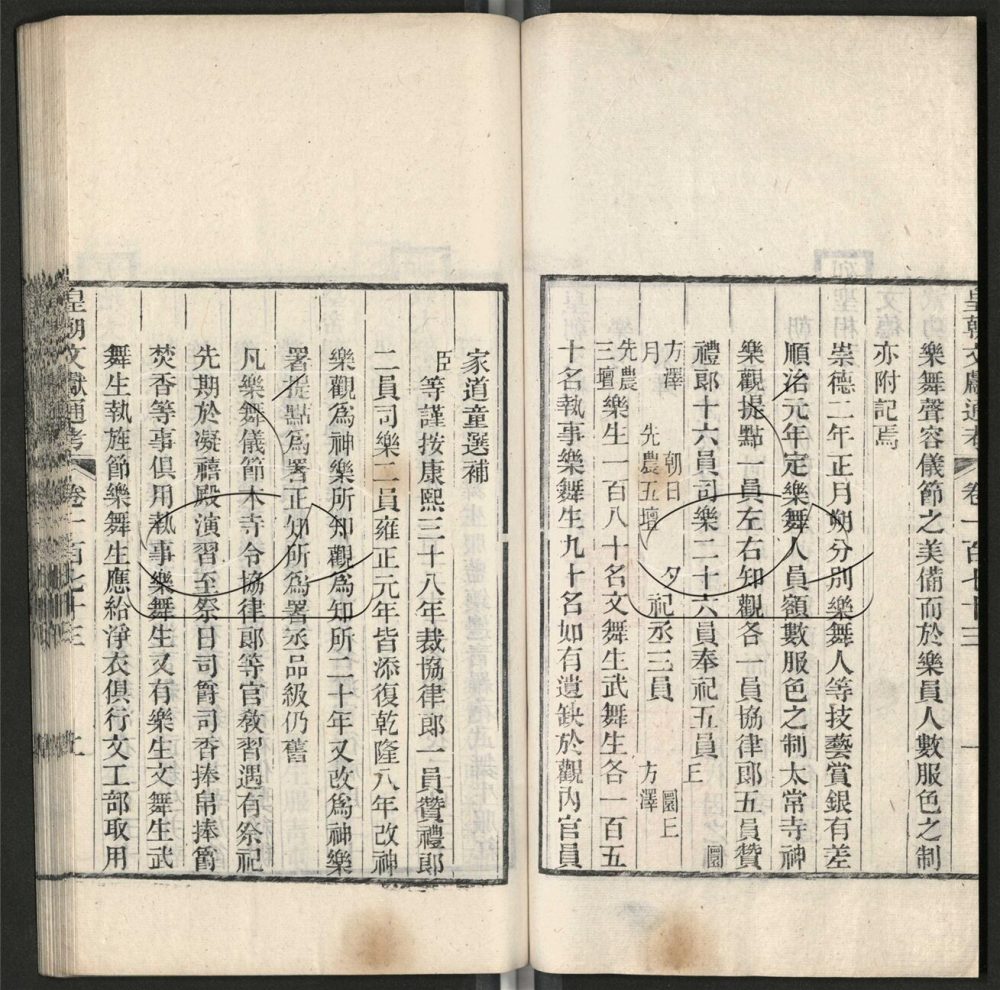 皇朝文獻通考 卷一百七十三 一
樂舞聲容儀節之美備而於樂員人數服色之制
亦附記焉
崇德二年正月朔分別樂舞人等技藝賞銀有差
順治元年定樂舞人員額數服色之制太常寺神
樂觀提點一員左右知觀各一員協律郎五員贊
禮郎十六員司樂二十六員奉祀五員圜
丘
方澤 朝日 夕
月 先農五壇
祀丞三員
圜丘
方澤
先農
三壇
樂生一百八十名文舞生武舞生各一百五
十名執事樂舞生九十名如有遺缺於觀內官員
家道童選補
臣等謹按康熙三十八年裁協律郎一員贊禮郎
二員司樂二員雍正元年皆添復乾隆八年改神
樂觀為神樂所知觀為知所二十年又改為神樂
署提點為署正知所為署丞品級仍舊
凡樂舞儀節本寺令協律郎等官教習遇有祭祀
先期於凝禧殿演習至祭日司爵司香捧帛捧爵
焚香等事俱用執事樂舞生又有樂生文舞生武
舞生執旌節樂舞生應給淨衣俱行文工部取用
皇朝文獻通考 卷一百七十三